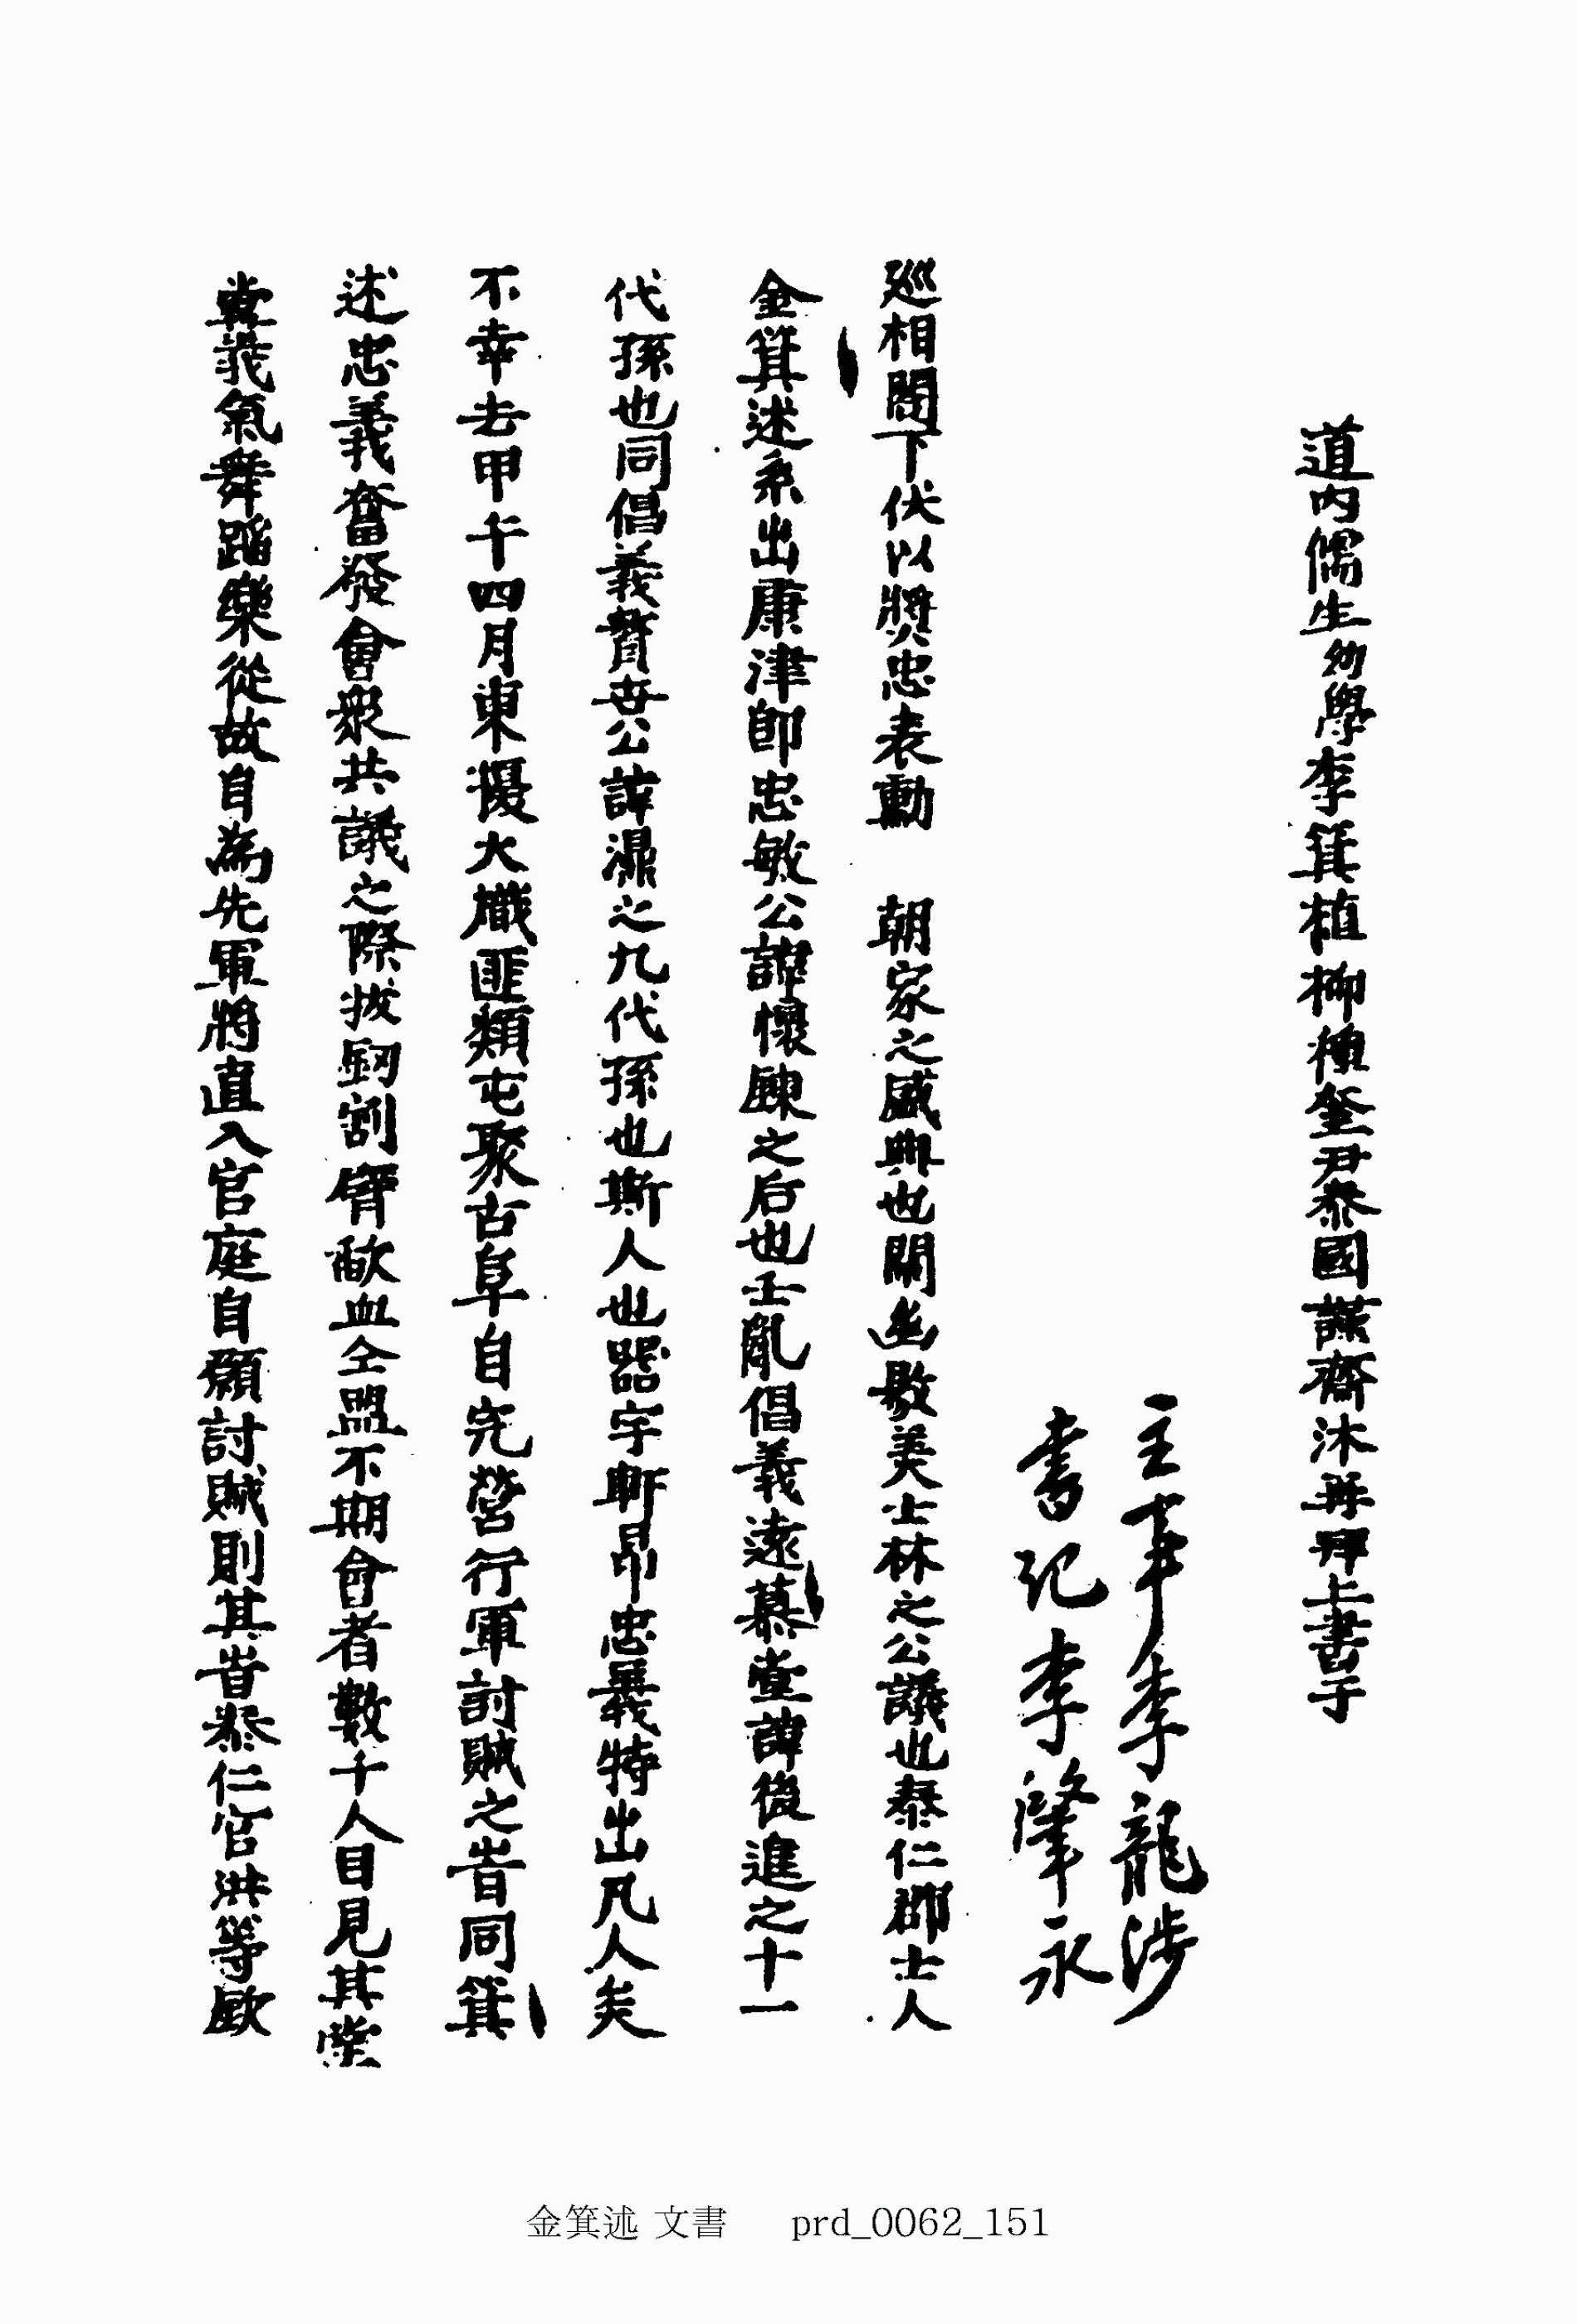 道內儒生幼學李箕植柳種奎尹泰國謹齋沐再拜上書于
主事李龍涉
書記李肇永
巡相閤下伏以奬忠表勳 朝家之盛典也闡幽敭美士林之公議也泰仁郡士人
金箕述系出康津卽忠敏公諱懷鍊之后也壬亂倡義遠慕堂諱後進之十一
代孫也同倡義贊世公諱灝之九代孫也斯人也器宇軒昂忠義特出凡人矣
不幸去甲午四月東擾大熾匪類屯聚古阜自完營行軍討賊之旹同箕
述忠義奮發會衆共議之際拔釼割臂歃血仝盟不期會者數千人目見其堂
堂義氣舞蹈樂從故自爲先軍將直入官庭自願討賊則其旹泰仁官洪等欽
金箕述 文書 prd_0062_151